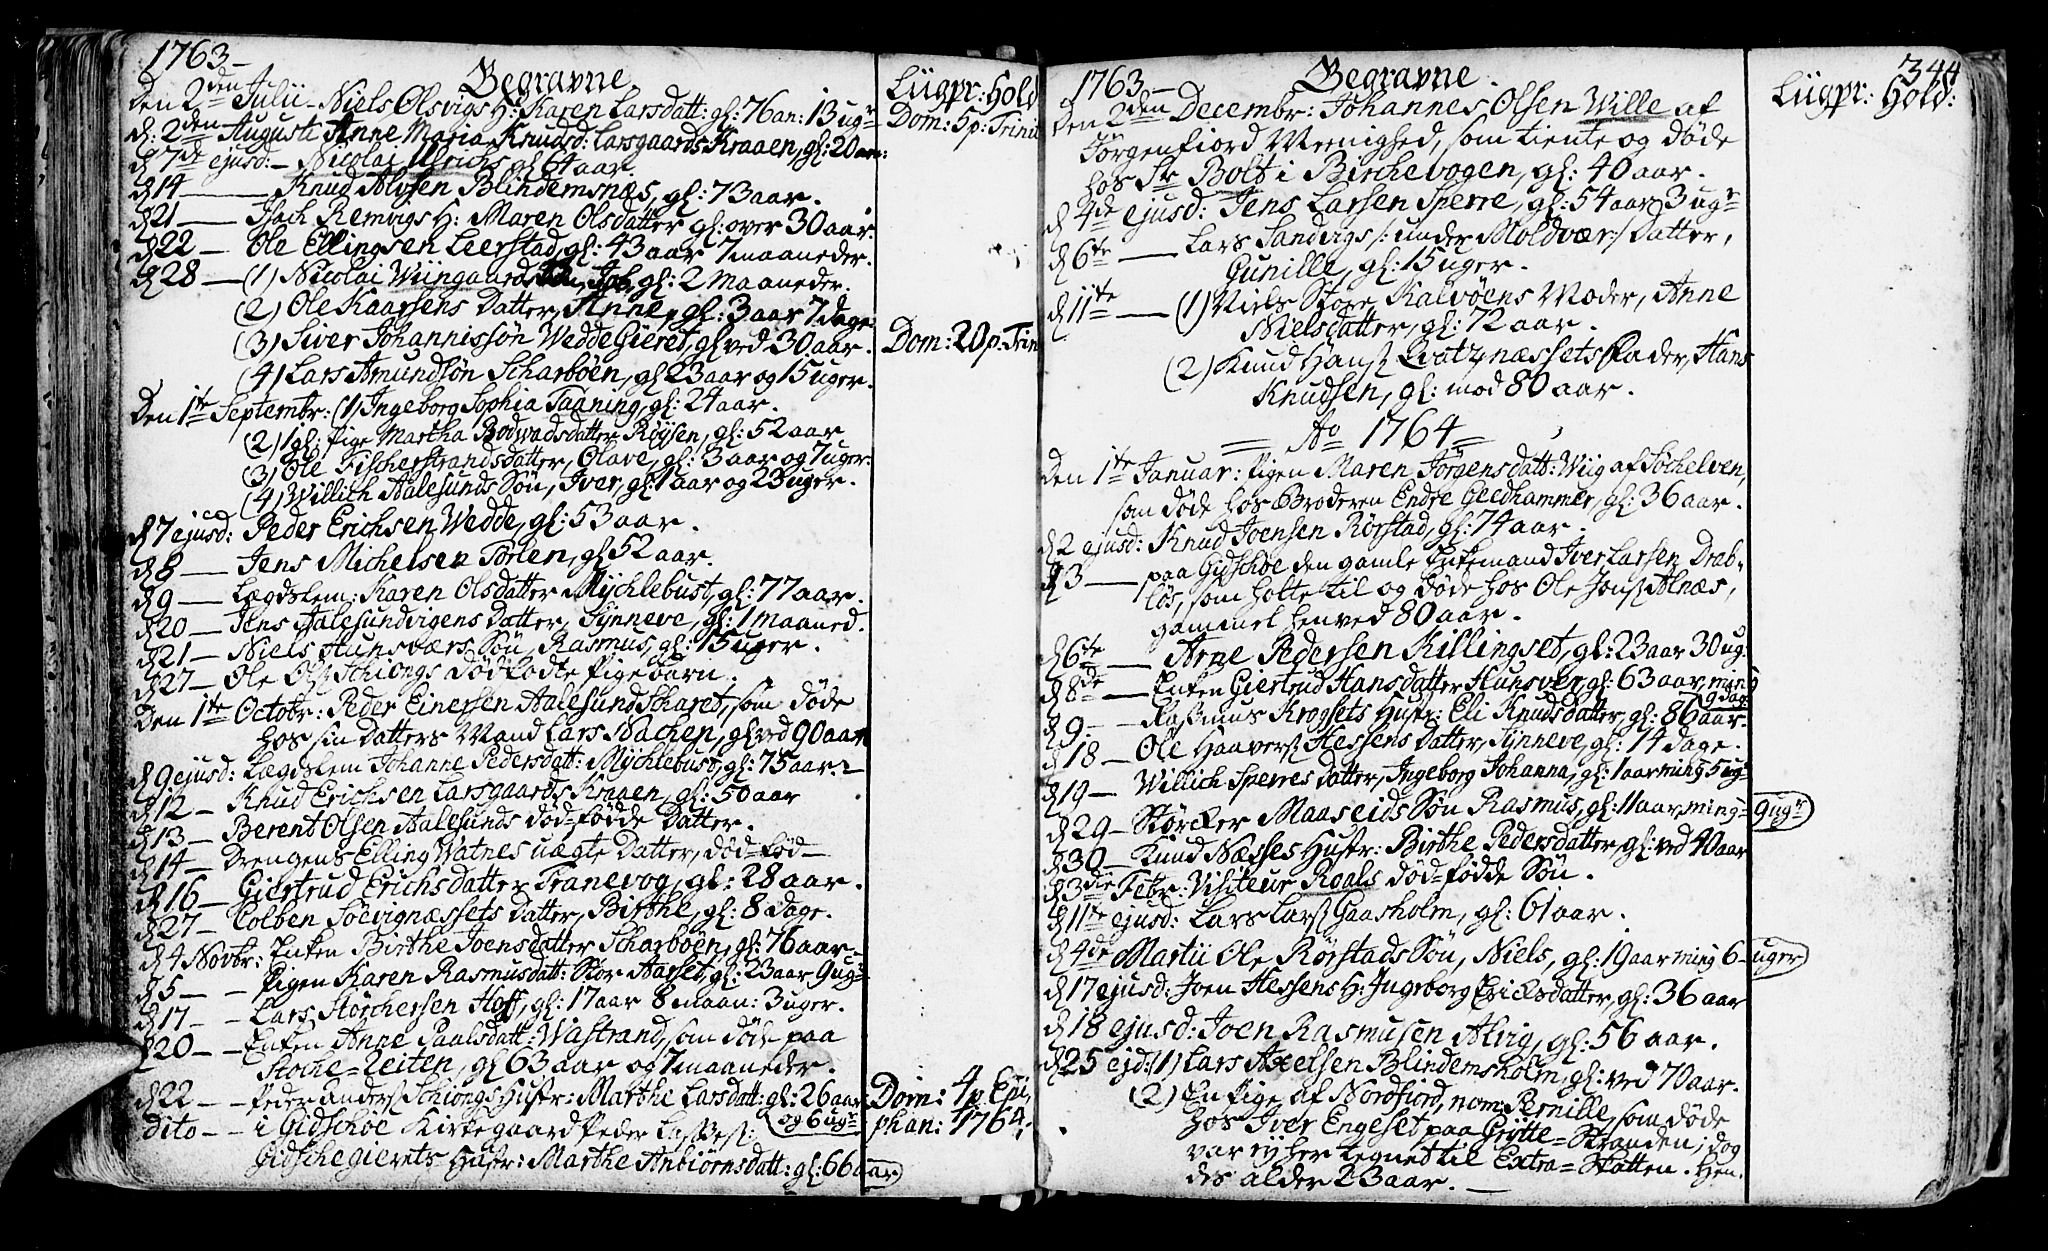 1763-
Begravne
Lügpr: Hold
Den 2den Julii - Niels Olsvigs H: Karen Larsdatt: gl: 76 an: 13 ugr
Dom: 5 p: Trinit
d: 2den Augusti Anne Maria Knudsd: Larsgaards Kraaen, gl: 20 aar:
d 7de ejusd: - Nicolai Ulrichs gl 64 aar.
d 14 — Knud Alvsen Blindemsnæs, gl: 73 aar.
d 21 — Isach Remvigs H: Maren Olsdatter gl: over 30 aar.
d 22 — Ole Ellingsen Leerstad, gl: 43 aar 7 maaneder.
d 28 — (1) Nicolai Wiingaards gl: 2 Maaneder.
(2) Ole Kaarsens Datter, Anne, gl: 3 aar 7 dage
(3) Siver Johannissøn Wedde Gieret, gl ved 30 aar.
Dom: 20 p. Trin
(4) Lars Amundsøn Scharbøen, gl 23 aar og 15 uger.
Den 1te Septembr: (1) Ingeborg Sophia Taaning, gl: 24 aar.
(2) 1 gl: Pige Martha Bodvadsdatter Røysen, gl: 52 aar
(3) Ole Fischerstrandsdatter, Olave, gl: 3 aar og 7 uger:
(4) Willich Aalesunds Søn, Iver, gl: 1 aar og 23 uger.
d 7 ejusd: Peder Erichsen Wedde, gl: 53 aar.
d 8 — Jens Michelsen Torlen, gl 52 aar.
d 9 — Lægdslem: Karen Olsdatter Mychlebust, gl: 77 aar.
d 20 — Jens Aalesundvigens Datter, Synneve, gl: 1 maaned.
d 21 — Niels Hunsværs Søn, Rasmus, gl: 15 uger.
d 27 — Ole Ols Schiongs dødfødte Pigebarn.
Den 1te Octobr: Peder Einersen Aalesund Scharet, som døde
hos sin Datters Mand Lars Nachen, gl ved 90 aar
d 9 ejusd: Lægdslem Johanne Pedersdatt: Mychlebust, gl: 75 aar.
d 12 - Knud Erichsen Larsgaards Kraaen, gl: 50 aar
d 13 - Berent Olsen Aalesunds død-fødde Datter.
d 14 - Drengens Elling Watnes uægte Datter, død-fød
d 16 - Giertrud Erichsdatter Tranevog, gl: 28 aar.
d 27 - Colben Søevignæssets Datter, Birthe, gl: 8 dage.
d 4 Novbr: Enken Birthe Joensdatter Scharbøen, gl: 76 aar
d 5 - - Pigen Karen Rasmusdatt: Stor Aarset, gl: 23 aar 9 ugr
d 17 - - Lars Størchersen Hoff, gl: 17 aar 8 maan: 3 uger.
d 20 - - Enken Anne Paulsdatt: Wastrand, som døde paa
Stoche-Leiten, gl 63 aar og 7 maaneder.
d 22 - - Peder Anders Schiongs Hustr: Marthe Larsdatt: gl: 26 aar
og 6 ugr
Dom: 4 p. Epi
phan: 1764.
dito - - i Gidschøe Kirkegaard Peder
Gidschegierets Hustr: Marthe Anbiørnsdatt: gl: 66 aar
1763-
Begravne.
344
Lügpr: Hold:
Den 2den Decembr: Johannes Olsen Wille af
Jørgenfiord Meenighed, som tiente og døde
hos Sr Bolt i Birchevogen, gl: 40 aar.
d 4de ejusd: Jens Larsen Sperre, gl: 54 aar 3 ugr
d 6te — Lars Sandvigs /: under Moldvær:/ Datter,
Gunille, gl: 15 uger.
d 11te — (1) Niels Store Kalvøens Moder, Anne
Nielsdatter, gl: 72 aar.
(2) Knud Hans Qvatznæssets Fader, Hans
Knudsen, gl: mod 80 aar.
= Ao 1764 =
Den 1te Januar: Pigen Maren Jørgensdatt: Wiig af Søchelven,
som døde hos Broderen Endre Geedhammer, gl: 36 aar.
d 2 ejusd: Knud Joensen Rørstad, gl: 74 aar.
d 3 — paa Gidschøe den gamle Enkemand Iver Larsen Drab-
løs, som holte til og døde hos Ole Jons Alnæs,
gammel henved 80 aar.
d 6te — Arne Pedersen Killingset, gl: 23 aar 30 ug:
d 8de — Enken Giertrud Hansdatter Hunsver, gl: 63 aar, ming
9 dag
d 9 - - Rasmus Krogsets Hustr: Eli Knudsdatter, gl: 86 aar.
d 18 - Ole Haavers Hessens Datter, Synneve, gl: 14 dage.
d 19 - Willich Sperres Datter, Ingeborg Johanna, gl: 1 aar ming 5 ugr
d 29 - Størcker Maaseids Søn Rasmus, gl: 11 aar, ming= 9 ugr
d 30 - Knud Næsses Hustr: Birthe Pedersdatter, gl: ved 40 aar
d 3die Febr: Visiteur Roals død-fødde Søn.
d 11te ejusd: Lars Lars Gaasholm, gl: 61 aar.
d 4de Martii Ole Rørstads Søn, Niels, gl: 19 aar ming 6 uger
d 17 ejusd: Joen Hessens H: Ingeborg Ericksdatter, gl: 36 aar
d 18 ejusd: Joen Rasmusen Alvig, gl: 56 aar.
d 25 ejd: (1) Lars Axelsen Blindemsholm, gl: ved 70 aar.
(2) En Pige af Nordfiord, nom: Pernille, som døde
hos Iver Engeset paa Grytte-Stranden; dog
var ey her tegnet til Extra-Skatten. Hen-
des alder 23 aar. —